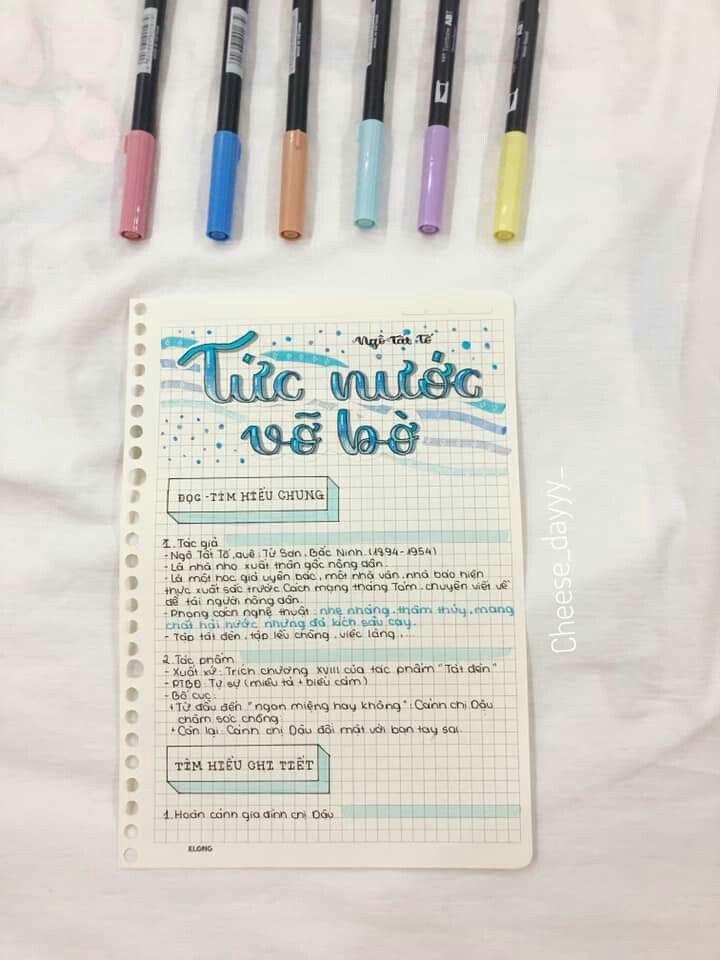 Ngô Tất Tố
Tức nước
vỡ bờ
ĐỌC - TÌM HIỂU CHUNG
1. Tác giả
- Ngô Tất Tố, quê: Từ Sơn, Bắc Ninh. (1894-1954)
- Là nhà nho xuất thân gốc nông dân.
- Là một học giả uyên bác, một nhà văn, nhà báo hiện
thực xuất sắc trước Cách mạng tháng Tám, chuyên viết về
đề tài người nông dân.
- Phong cách nghệ thuật: nhẹ nhàng, thâm thúy, mang
chất hài nước nhưng đả kích sâu cay.
- Tắp tắt đèn, tập lều chõng, việc làng...
2. Tác phẩm
- Xuất xứ: Trích chương XVIII của tác phẩm "Tắt đèn"
- PTBĐ: Tự sự (miêu tả + biểu cảm)
- Bố cục:
+ Từ đầu đến "ngon miệng hay không": Cảnh chị Dậu
chăm sóc chồng.
+ Còn lại: Cảnh chị Dậu đối mặt với bọn tay sai.
TÌM HIỂU CHI TIẾT
1. Hoàn cảnh gia đình chị Dậu
ELONG
Cheese_dayyy_